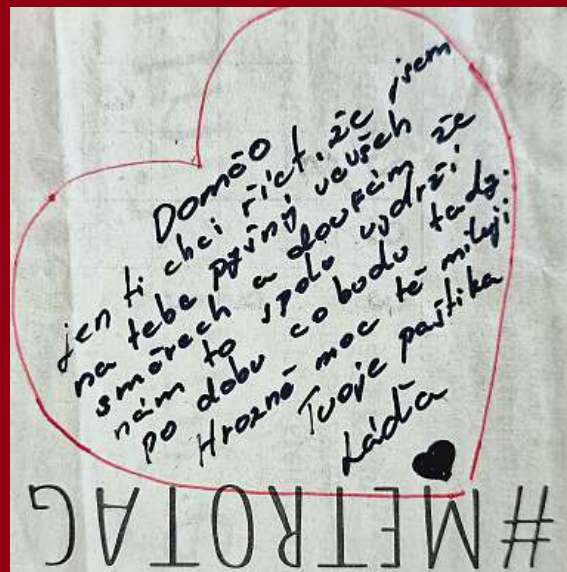 Doměo
jen ti chci říct, že jsem
na tebe pyšný ve všech
směrech a doufám že
nám to spolu vydrží
po dobu co budu tady.
Hrozně moc tě miluji
Tvoje paštika
Láďa
#METROTAG